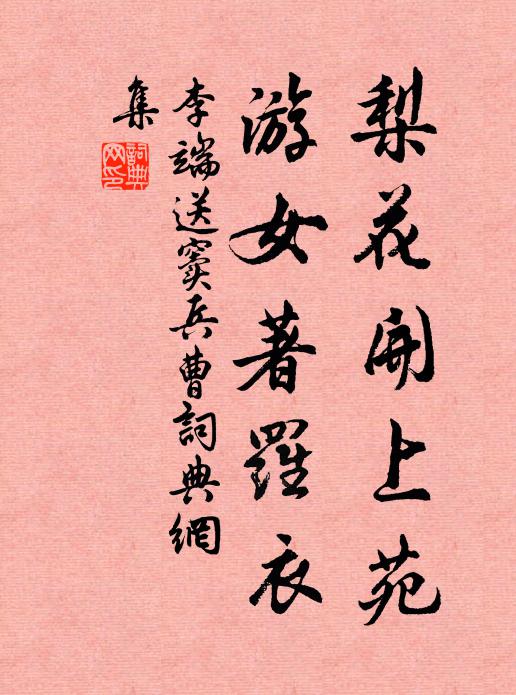 梨花開上苑
游女著羅衣
李端送竇兵曹詞典網
集
詞典
网印